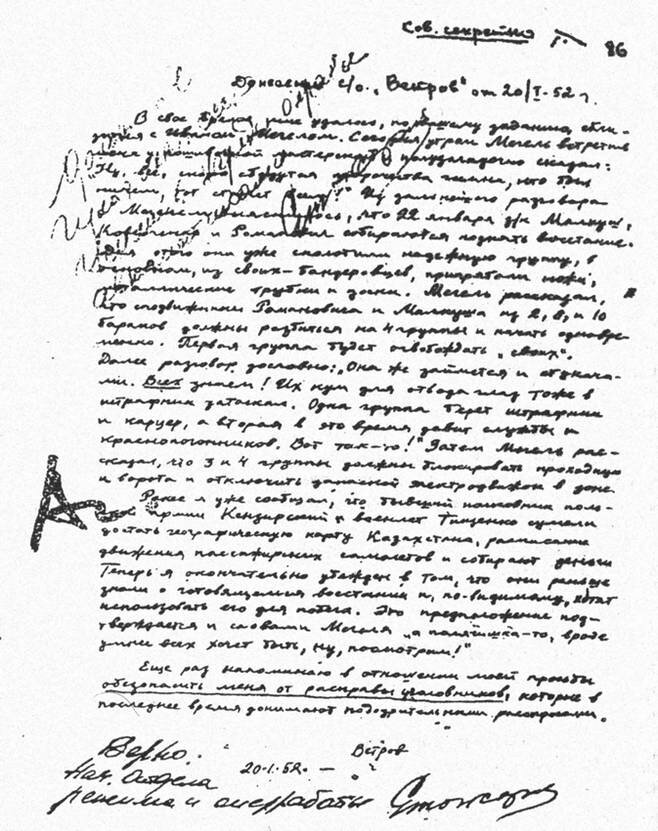 Сов. секретно
86
Донесение с/о. „Ветров" от 20/I-52 г.
В свое время мне удалось, по вашему заданию, сбли-
зиться с Иваном Мегелом. Сегодня утром Мегель встретив
меня у полузагадочно сказал:
"Ну, все, скоро
Из дальнейшего разговора
с Мегелем, что 22 января з/к Малкуш,
и Романович собираются поднять восстание.
Для этого они уже сколотили надежную группу, в
основном, из своих-бандеровцев, припрятали ножи,
металлические трубки и доски. Мегель рассказал,
что сподвижники Романовича и Малкуша из 2, 8, и 10
бараков должны разбиться на 4 группы и начать одновре-
менно. Первая группа будет освобождать „своих".
Далее разговор дословно: „Она же займется и стукача-
ми. Всех знаем! Их кум для отвода глаз тоже в
штрафник затолкал. Одна группа берет штрафник
и карцер, а вторая в это время давит службы и
краснопогонников. Вот так-то!" Затем Мегель рас-
сказал, что 3 и 4 группы должны блокировать проходную
и ворота и отключить запасной электродвижок в зоне.
Ранее я уже сообщал, что бывший полковник поль-
ской армии Кензирский и военлет Тищенко сумели
достать географическую карту Казахстана, расписание
движения пассажирских самолетов и собирают деньги
Теперь я окончательно убежден в том, что они раньше
знали о готовящемся восстании и, по-видимому, хотят
использовать его для побега. Это предположение под-
тверждается и словами Мегеля „а полячишка-то, вроде
умнее всех хочет быть, ну, посмотрим!"
Еще раз напоминаю в отношении моей просьбы
обезопасить меня от расправы уголовников, которые в
последнее время донимают подозрительными расспросами.
Верно:
Ветров
Нач. отдела
20.I.52.
режима и оперработы